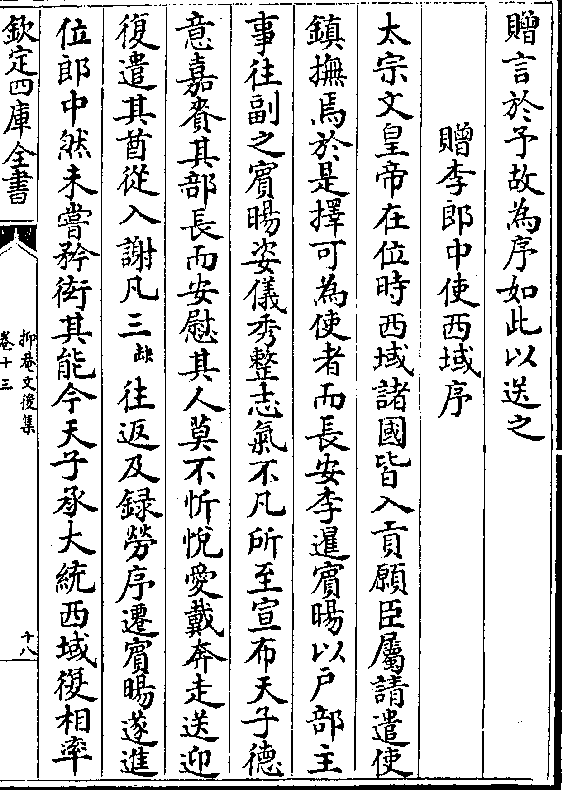 贈言於予故為序如此以送之
贈李郎中使西域序
太宗文皇帝在位時西域諸國皆入貢願臣屬請遣使
鎮撫焉於是擇可為使者而長安李暹賓暘以戶部主
事往副之賓暘姿儀秀整志氣不凡所至宣布天子德
意嘉賚其部長而安慰其人莫不忻悅愛戴奔走送迎
復遣其酋從入謝凡三闕往返及録勞序遷賓暘遂進
位郎中然未嘗矜衒其能今天子承大統西域復相率
欽定四庫全書
抑菴文後集
卷十三
十八